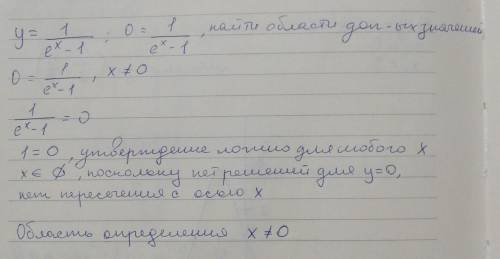 y = 1/(eˣ-1) ; 0 = 1/(eˣ-1) , найти области доп-ых значений
0 = 1/(eˣ-1) , x ≠ 0
1/(eˣ-1) = 0
1 = 0 , утверждение ложно для любого x
x ∈ ∅ , поскольку нет решений для y=0,
нет пересечения с осью x
Область определения x ≠ 0